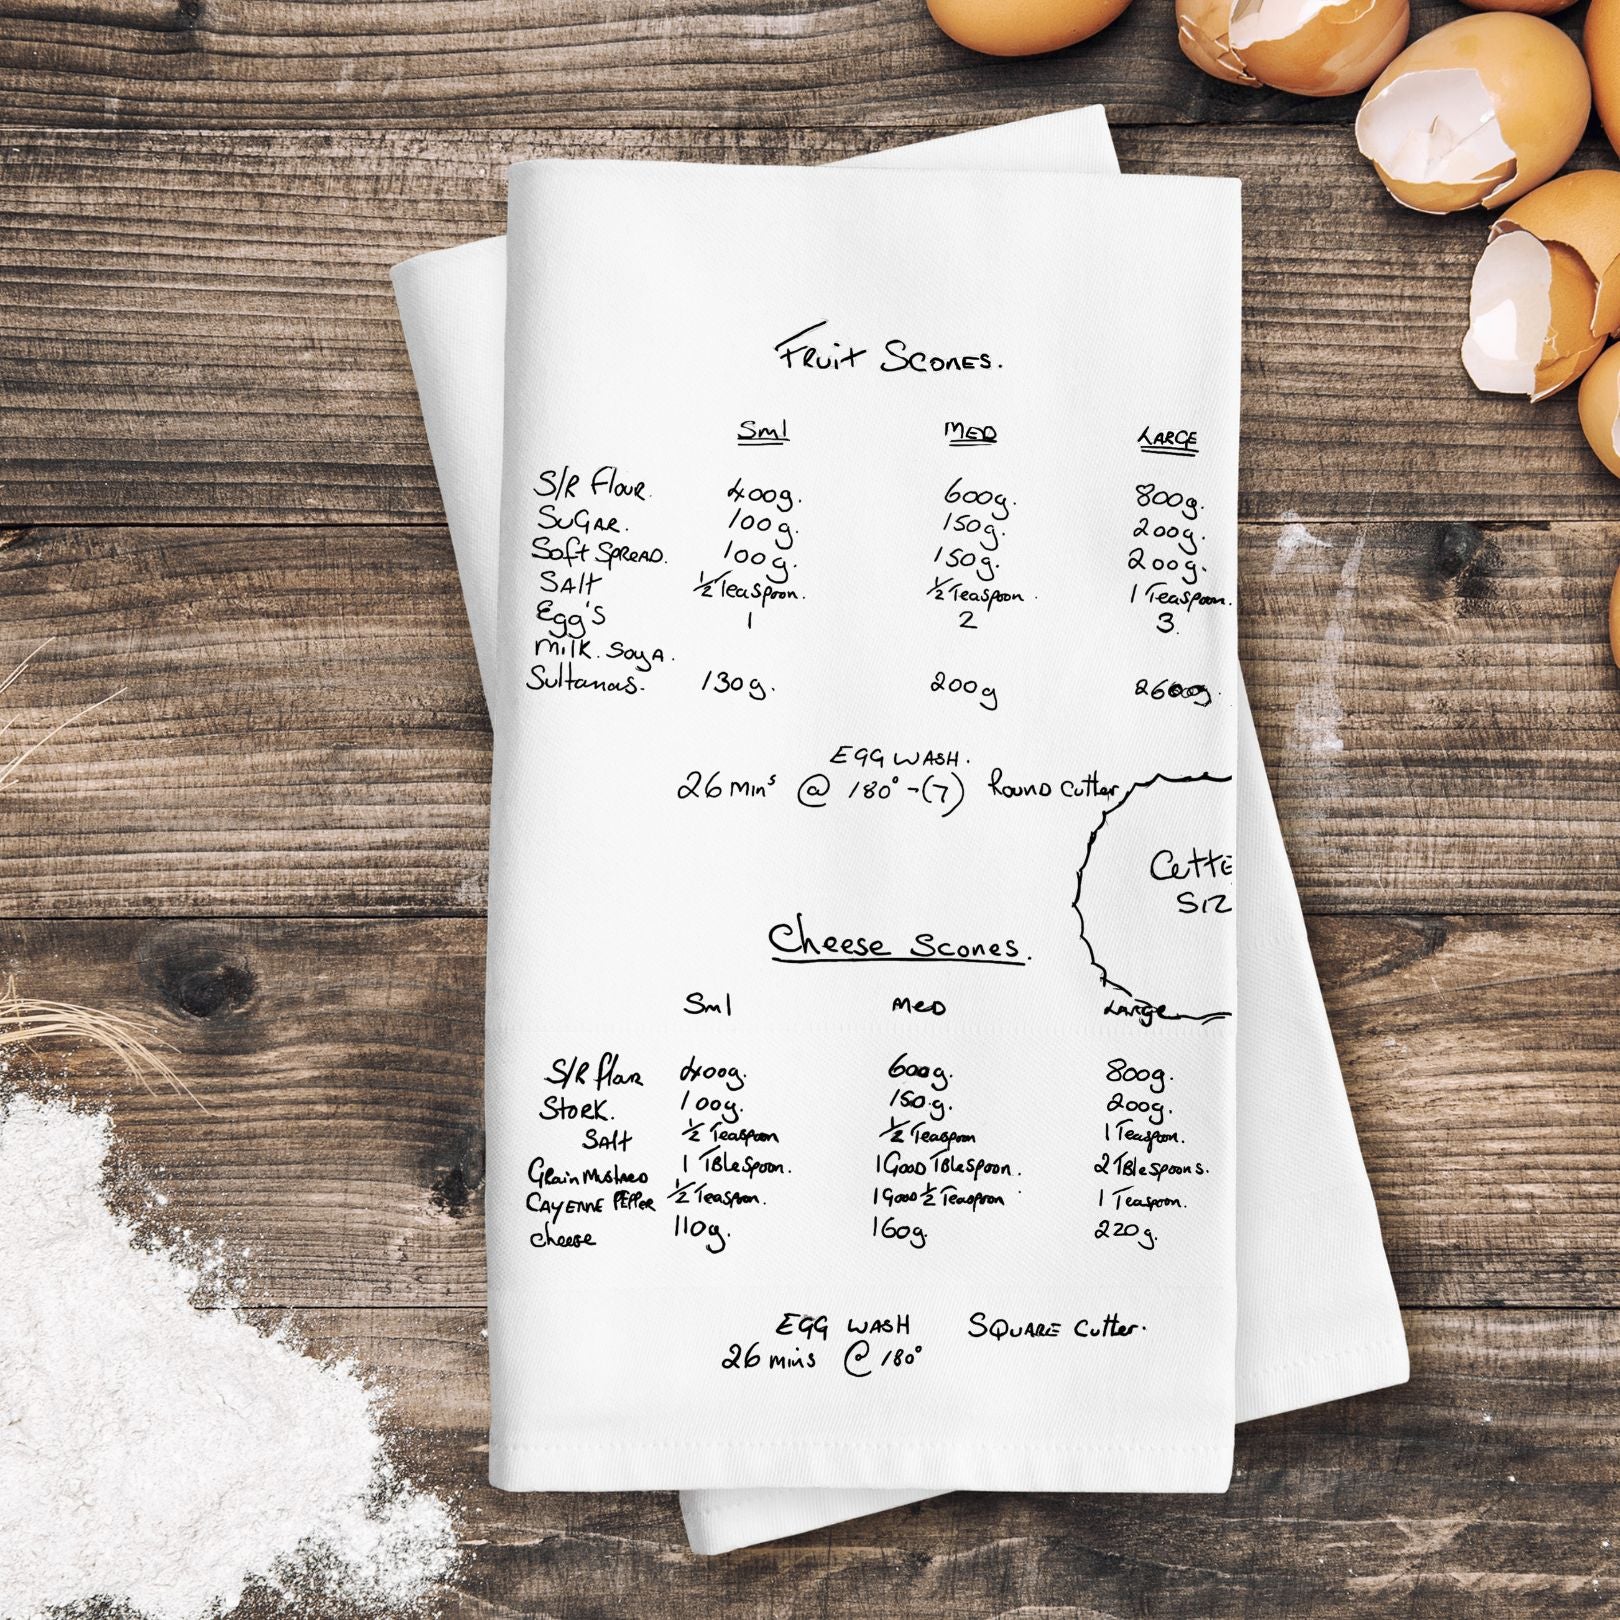 Fruit Scones.
Sml MED LARGE
S/R Flour. 400g. 600g. 800g.
SuGAR. 100g. 150g. 200g.
Soft SPREAD. 100g. 150g. 200g.
SAlt 1/2 Teaspoon. 1/2 Teaspoon. 1 Teaspoon.
Egg's 1 2 3.
Milk. Soya.
Sultanas. 130g. 200g
EGG WASH.
26 Mins @ 180° -(7) Round Cutter
Cutte
SIZ
Cheese Scones.
Sml MED LARge
S/R flour 400g. 600g. 800g.
Stork. 100g. 150g. 200g.
SAlt 1/2 Teaspoon 1/2 Teaspoon 1 Teaspoon.
Grain Mustard 1 TBleSpoon. 1 Good TBleSpoon. 2 TBleSpoons.
CAYENNE PEPPer 1/2 Teaspoon. 1 Good 1/2 Teaspoon 1 Teaspoon.
cheese 110g. 160g. 220g.
EGG WASH SQUARE Cutter.
26 mins @ 180°